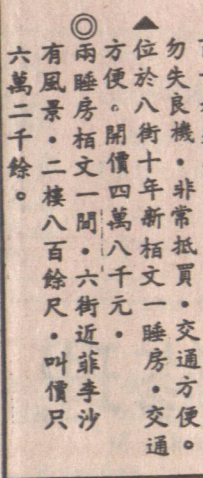 勿失良機・非常抵買・交通方便。
▲位於八街十年新栢文一睡房・交通
方便。開價四萬八千元・
◎兩睡房栢文一間・六街近菲李沙
有風景・二樓八百餘尺・叫價只
六萬二千餘。